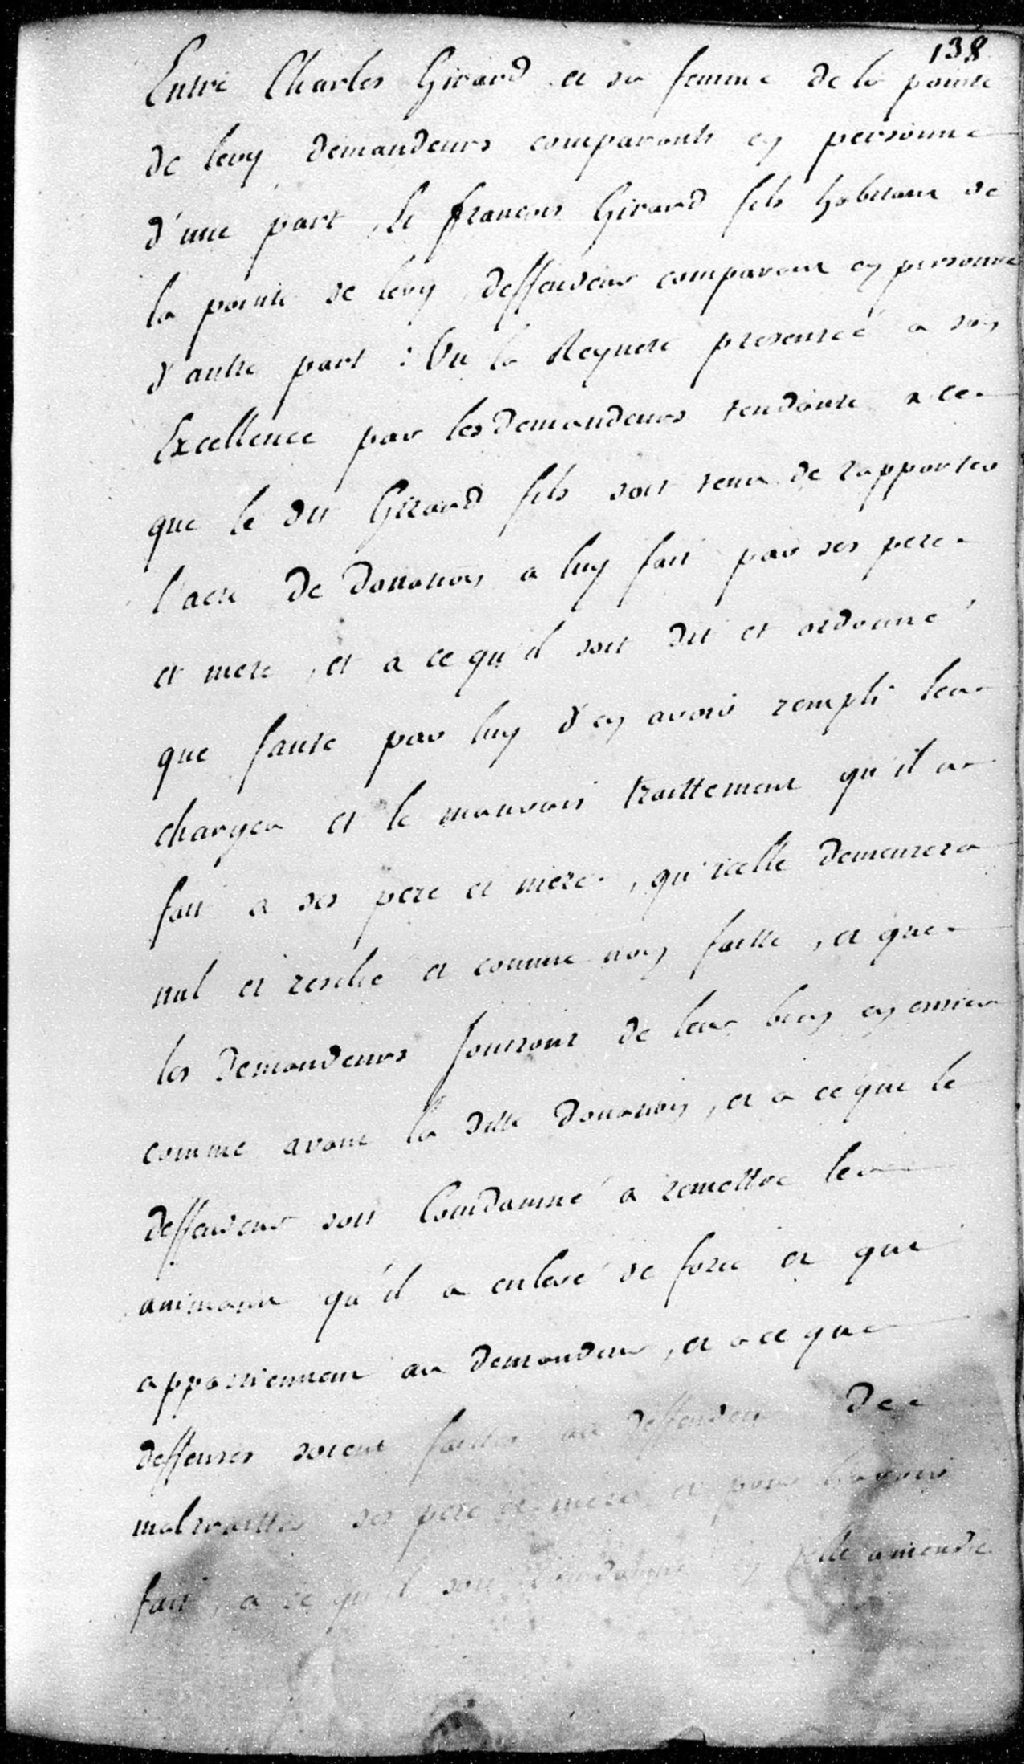 138
Entre Charles Girard et sa femme de la pointe
de levy demandeurs comparants en personne
d'une part, Et francois Girard fils habitant de
la pointe de levy deffendeur comparant en personne
d'autre part : Vu la Requete presenteé a son
Excellence par les demandeurs tendante a ce
que le dit Girard fils soit tenu de rapporter
l'acte de donation a luy fait par ses pere
et mere, et a ce qu'il soit dit et ordonné
que faute par luy d'en avoir rempli les
charges et le mauvais traittement qu'il a
fait a ses pere et mere, qu'icelle demeurera
nul et resilié et comme non faitte, et que
les demandeurs jouiront de leur bien en entier
comme avant la ditte donation, et a ce que le
deffendeur soit Condamné a remettre les
animaux qu'il a enlevé de force et qui
appartiennent au demandeur, et a ce que
deffenses soient faittes au deffendeur de
maltraitter ses pere et mere et pour l'avoir
fait, a ce qu'il soit Condamné en telle amende